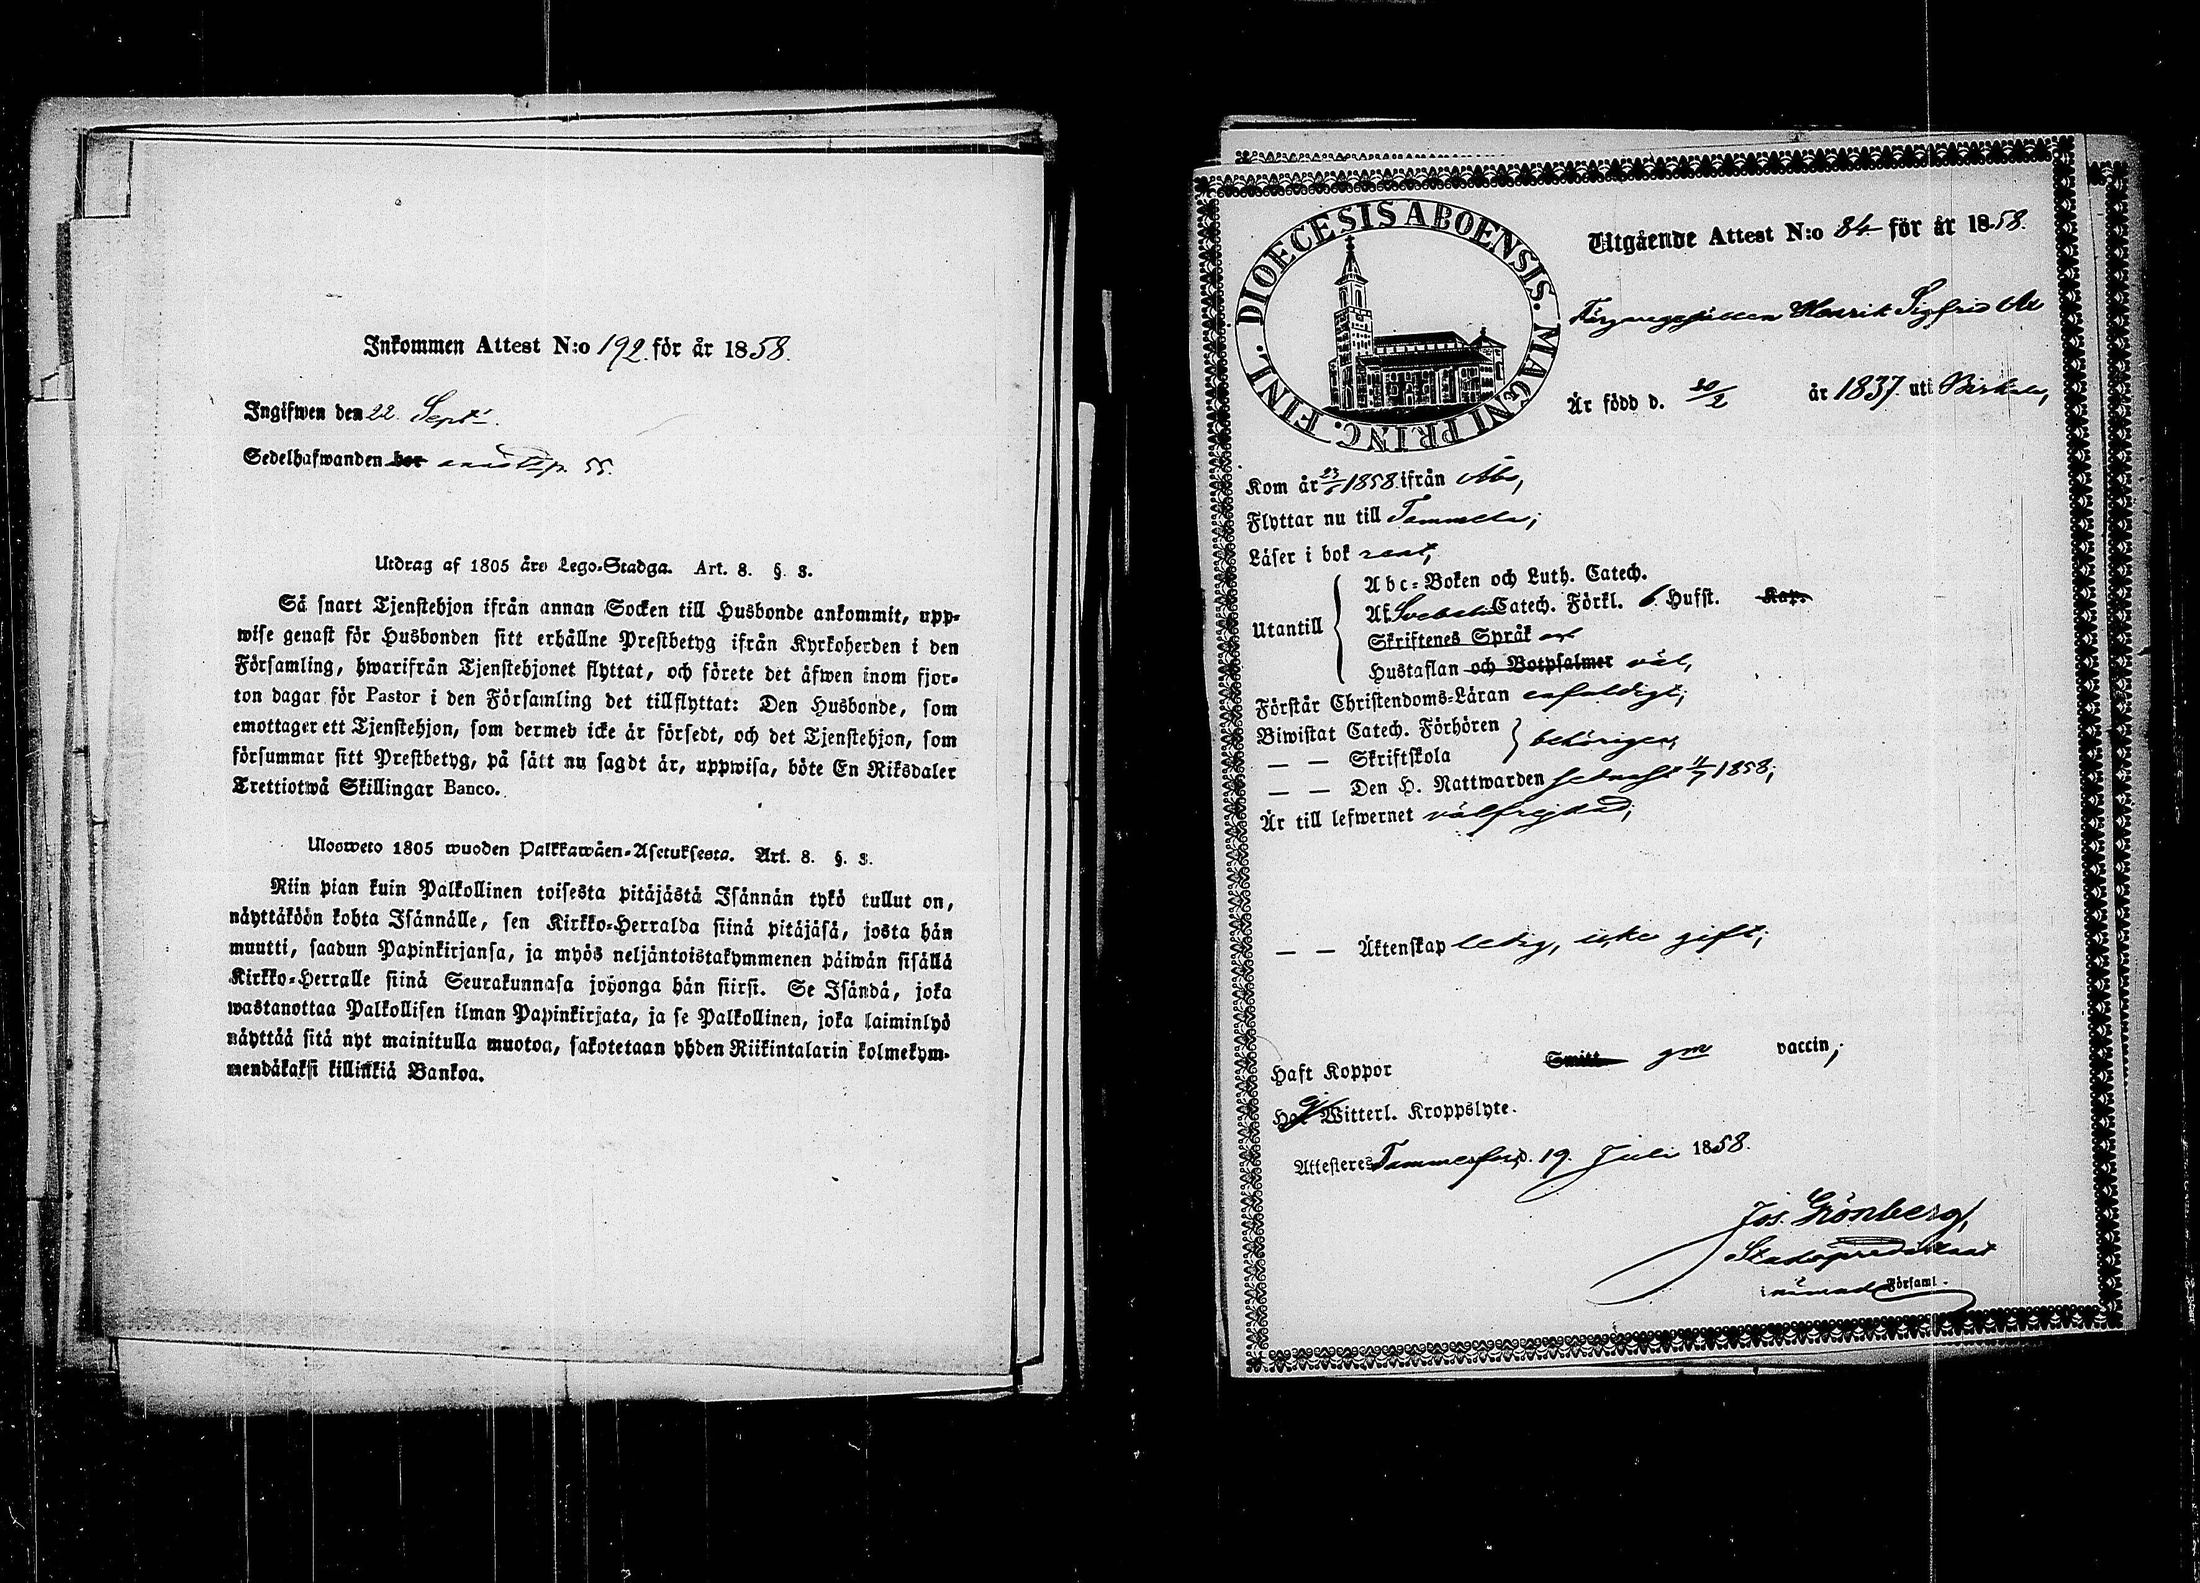 Inkommen Attest N:o 192 för år 1858.
Ingifwen den 22. Sept.
Sedelhafwanden bor
Utdrag af 1805 års Lego-Stadga. Art. 8. §. 3.
Så snart Tjenstehjon ifrån annan Socken till Husbonde ankommit, upp-
wise genast för Husbonden sitt erhållne Prestbetyg ifrån Kyrkoherden i den
Församling, hwarifrån Tjenstehjonet flyttat, och förete det äfwen inom fjor-
ton dagar för Pastor i den Församling det tillflyttat: Den Husbonde, som
emottager ett Tjenstehjon, som dermed icke är försedt, och det Tjenstehjon, som
försummar sitt Prestbetyg, på sätt nu sagdt är, uppwisa, böte En Riksdaler
Trettiotwå Skillingar Banco.
Ulosweto 1805 wuoden Palkkawäen-Asetuksesta. Art. 8. §. 3.
Niin pian kuin Palkollinen toisesta pitäjästä Isännän tykö tullut on,
näyttäköön kohta Isännälle, sen Kirkko-Herralda siinä pitäjäsä, josta hän
muutti, saadun Papinkirjansa, ja myös neljäntoistakymmenen päiwän sisällä
Kirkko-Herralle siinä Seurakunnasa johonga hän siirsi. Se Isändä, joka
wastanottaa Palkollisen ilman Papinkirjata, ja se Palkollinen, joka laiminlyö
näyttää sitä nyt mainitulla muotoa, sakotetaan yhden Riikintalarin kolmekym-
mendäkaksi killinkiä Bankoa.
DIOECESIS ABOENSIS. MAGNI PRINC. FINL.
Utgående Attest N:o 84 för år 1858.
Färgaregesällen Henrik Sigfrid
Är född d. 20/2 år 1837. uti Birkala,
Kom år 23/6 1858. ifrån Åbo,
Flyttar nu till Tammela;
Läser i bok rent,
Abc-Boken och Luth. Catech.
Af Svebelii Catech. Förkl. 6 Hufst. Kap.
Utantill
Skriftenes Språk
Hustaflan och Botpsalmer väl,
Förstår Christendoms-Läran enfaldigt;
Biwistat Catech. Förhören
— — Skriftskola
behörigen,
— — Den H. Nattwarden sednast 11/7 1858;
Är till lefwernet välfrejdad;
— — Äktenskap ledig, icke gift;
Haft Koppor Smitt gm vaccin;
Witterl. Kroppslyte.
Attesteres Tammerfors, d. 19. Juli 1858.
Jos. Grönberg,
Stadspredikant
i Församl.